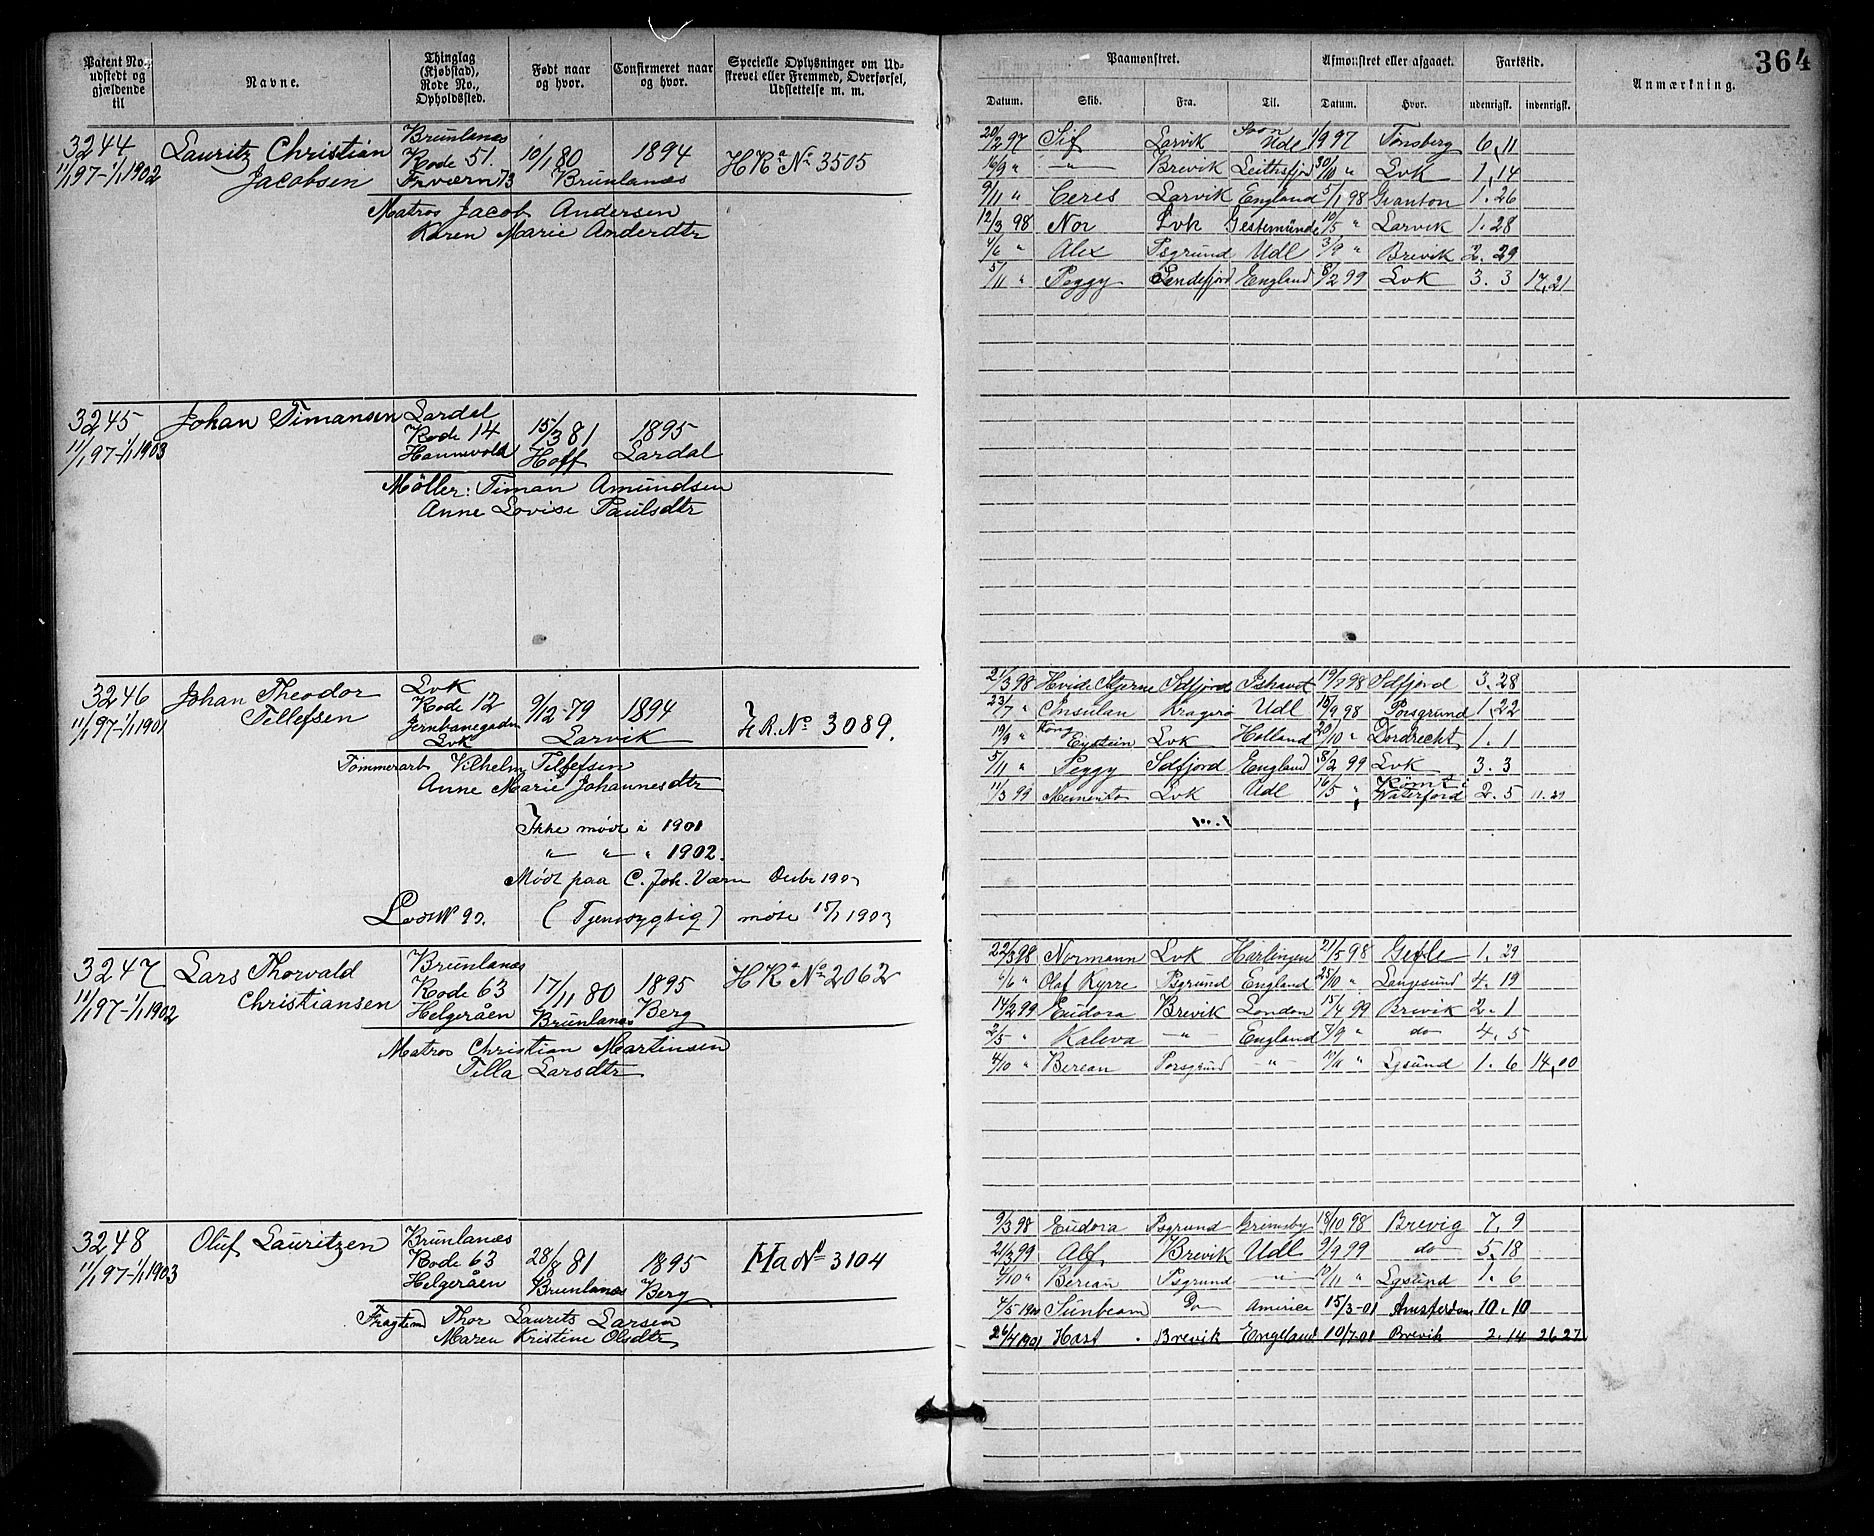 Patent No. udstedt og gjældende til
Navne.
Thinglag (Kjøbstad), Rode No., Opholdssted.
Født naar og hvor.
Confirmeret naar og hvor.
Specielle Oplysninger om Udskrevet eller Fremmed, Overførsel, Udslettelse m. m.
Paamønstret.
Afmønstret eller afgaaet.
Fartstid.
Anmærkning.
364
Datum. Skib. Fra. Til. Datum. Hvor. udenrigst. indenrigst.
3244 Lauritz Christian Brunlanæs
11/1 97-1/1 1902 Jacobsen Rode 51. 10/1 80 1894 HRa No 3505
Brunlanæs
Matros Jacob Andersen
Karen Marie Andersdtr
20/2 97 Sif Larvik Udl 1/9 97 Tönsberg 6, 11
16/9 " -"- Brevik Leithsfjord 30/10 " Lvk 1, 14
9/11 " Ceres Larvik England 5/1 98 Granton 1. 26
12/3 98 Nor Lvk Gestemünde 10/5 " Larvik 1. 28
4/6 " Alex Psgrund Udl 3/9 " Brevik 2. 29
5/11 " Peggy Sandefjord England 8/2 99 Lvk 3. 3 17,21
3245 Johan Timansen Lardal
11/1 97-1/1 1903 Rode 14 15/3 81 1895
Hannevold Hoff Lardal
Möller: Timan Amundsen
Anne Lovise Paulsdtr
3246 Johan Theodor Lvk
11/1 97-1/1 1901 Tillefsen Rode 12 9/12-79 1894 HR.No 3089.
Jernbanegaden
Lvk Larvik
Tømmerarb Vilhelm Tillefsen
Anne Marie Johannesdtr
Ikke mødt i 1901
" " " 1902.
Mødt paa C. Joh. Værn 1903
(Tjenstdygtig) møte 15/1 1903
21/3 98 Hvide Stjerne Sdfjord Ishavet 19/7 98 Sdfjord 3. 28
23/7 " Insulan Kragerø Udl 15/9 98 Porsgrund 1. 22
19/9 " Kong Eystein Lvk Holland 20/10 " Dordrecht 1. 1
5/11 " Peggy Sdfjord England 8/2 99 Lvk 3. 3
11/3 99 Memento Lvk Udl 16/5 " Rømt i Waterford 2. 5
3247 Lars Thorvald Brunlanæs
11/1 97-1/1 1902 Christiansen Rode 63 17/11 80 1895 HRa No 2062
Helgeråen Brunlanæs Berg
Matros Christian Martinsen
Tilla Larsdtr
22/3 98 Normann Lvk Harlingen 21/5 98 Gefle 1. 29
6/6 " Olaf Kyrre Psgrund England 25/10 " Langesund 4. 19
14/2 99 Eudora Brevik London 15/4 99 Brevik 2. 1
2/5 " Kaleva -"- England 7/9 " do 4. 5
4/10 " Berean Porsgrund -"- 10/11 " Lgsund 1. 6 14,00
3248 Oluf Lauritzen Brunlanæs
11/1 97-1/1 1903 Rode 63 28/8 81 1895 Ma No 3104
Helgeråen Brunlanæs Berg
Fragtem Thor Laurits Larsen
Maren Kristine Olsdtr
9/3 98 Eudora Psgrund Grimsby 18/10 98 Brevig 7. 9
21/3 99 Alf Brevik Udl 9/9 99 do 5. 18
4/10 " Berean Psgrund -"- 10/11 " Lgsund 1. 6
4/5 1900 Sunbeam Do America 15/3-01 Amsterdam 10. 10
26/4 1901 Hast Brevik England 10/7.01 Brevik 2. 14 26 27